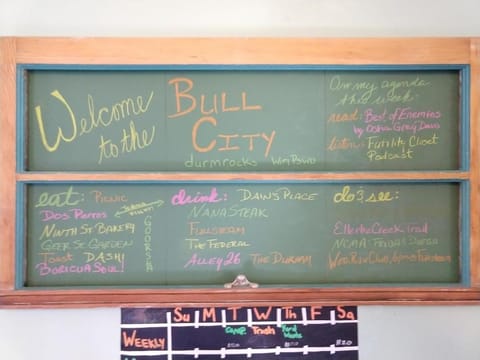 Welcome
to the
BULL
CITY
durmrocks
On my agenda
this week:
read: Best of Enemies
by Osha Gray Davis
listen: Futility Closet
Podcast
eat: PICNIC
DOS PERROS
NINTH ST BAKERY
GEER ST GARDEN
TOAST DASH!
BORICUA SOUL!
GOORSHA
drink: DAIN'S PLACE
NANASTEAK
FULLSTEAM
THE FEDERAL
ALLEY 26 THE DURHAM
do & see:
Ellerbe Creek Trail
Su M T W Th F Sa
WEEKLY
Trash
Yard
Waste